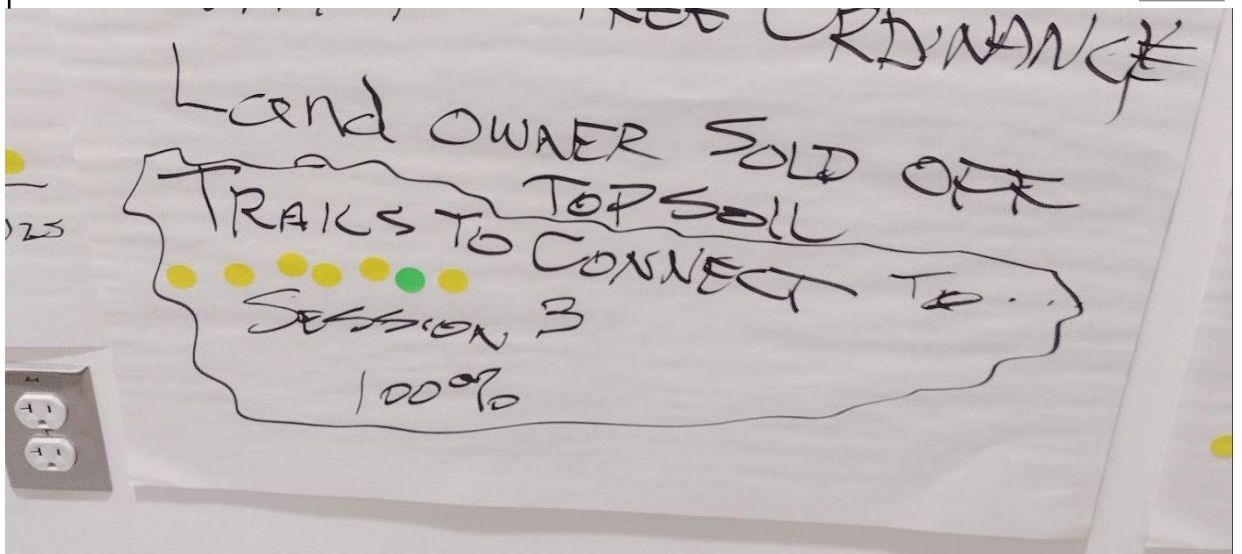 TREE ORDINANCE
Land OWNER SOLD OFF
TOPSOIL
TRAILS TO CONNECT TO...
SESSION 3
100%
025